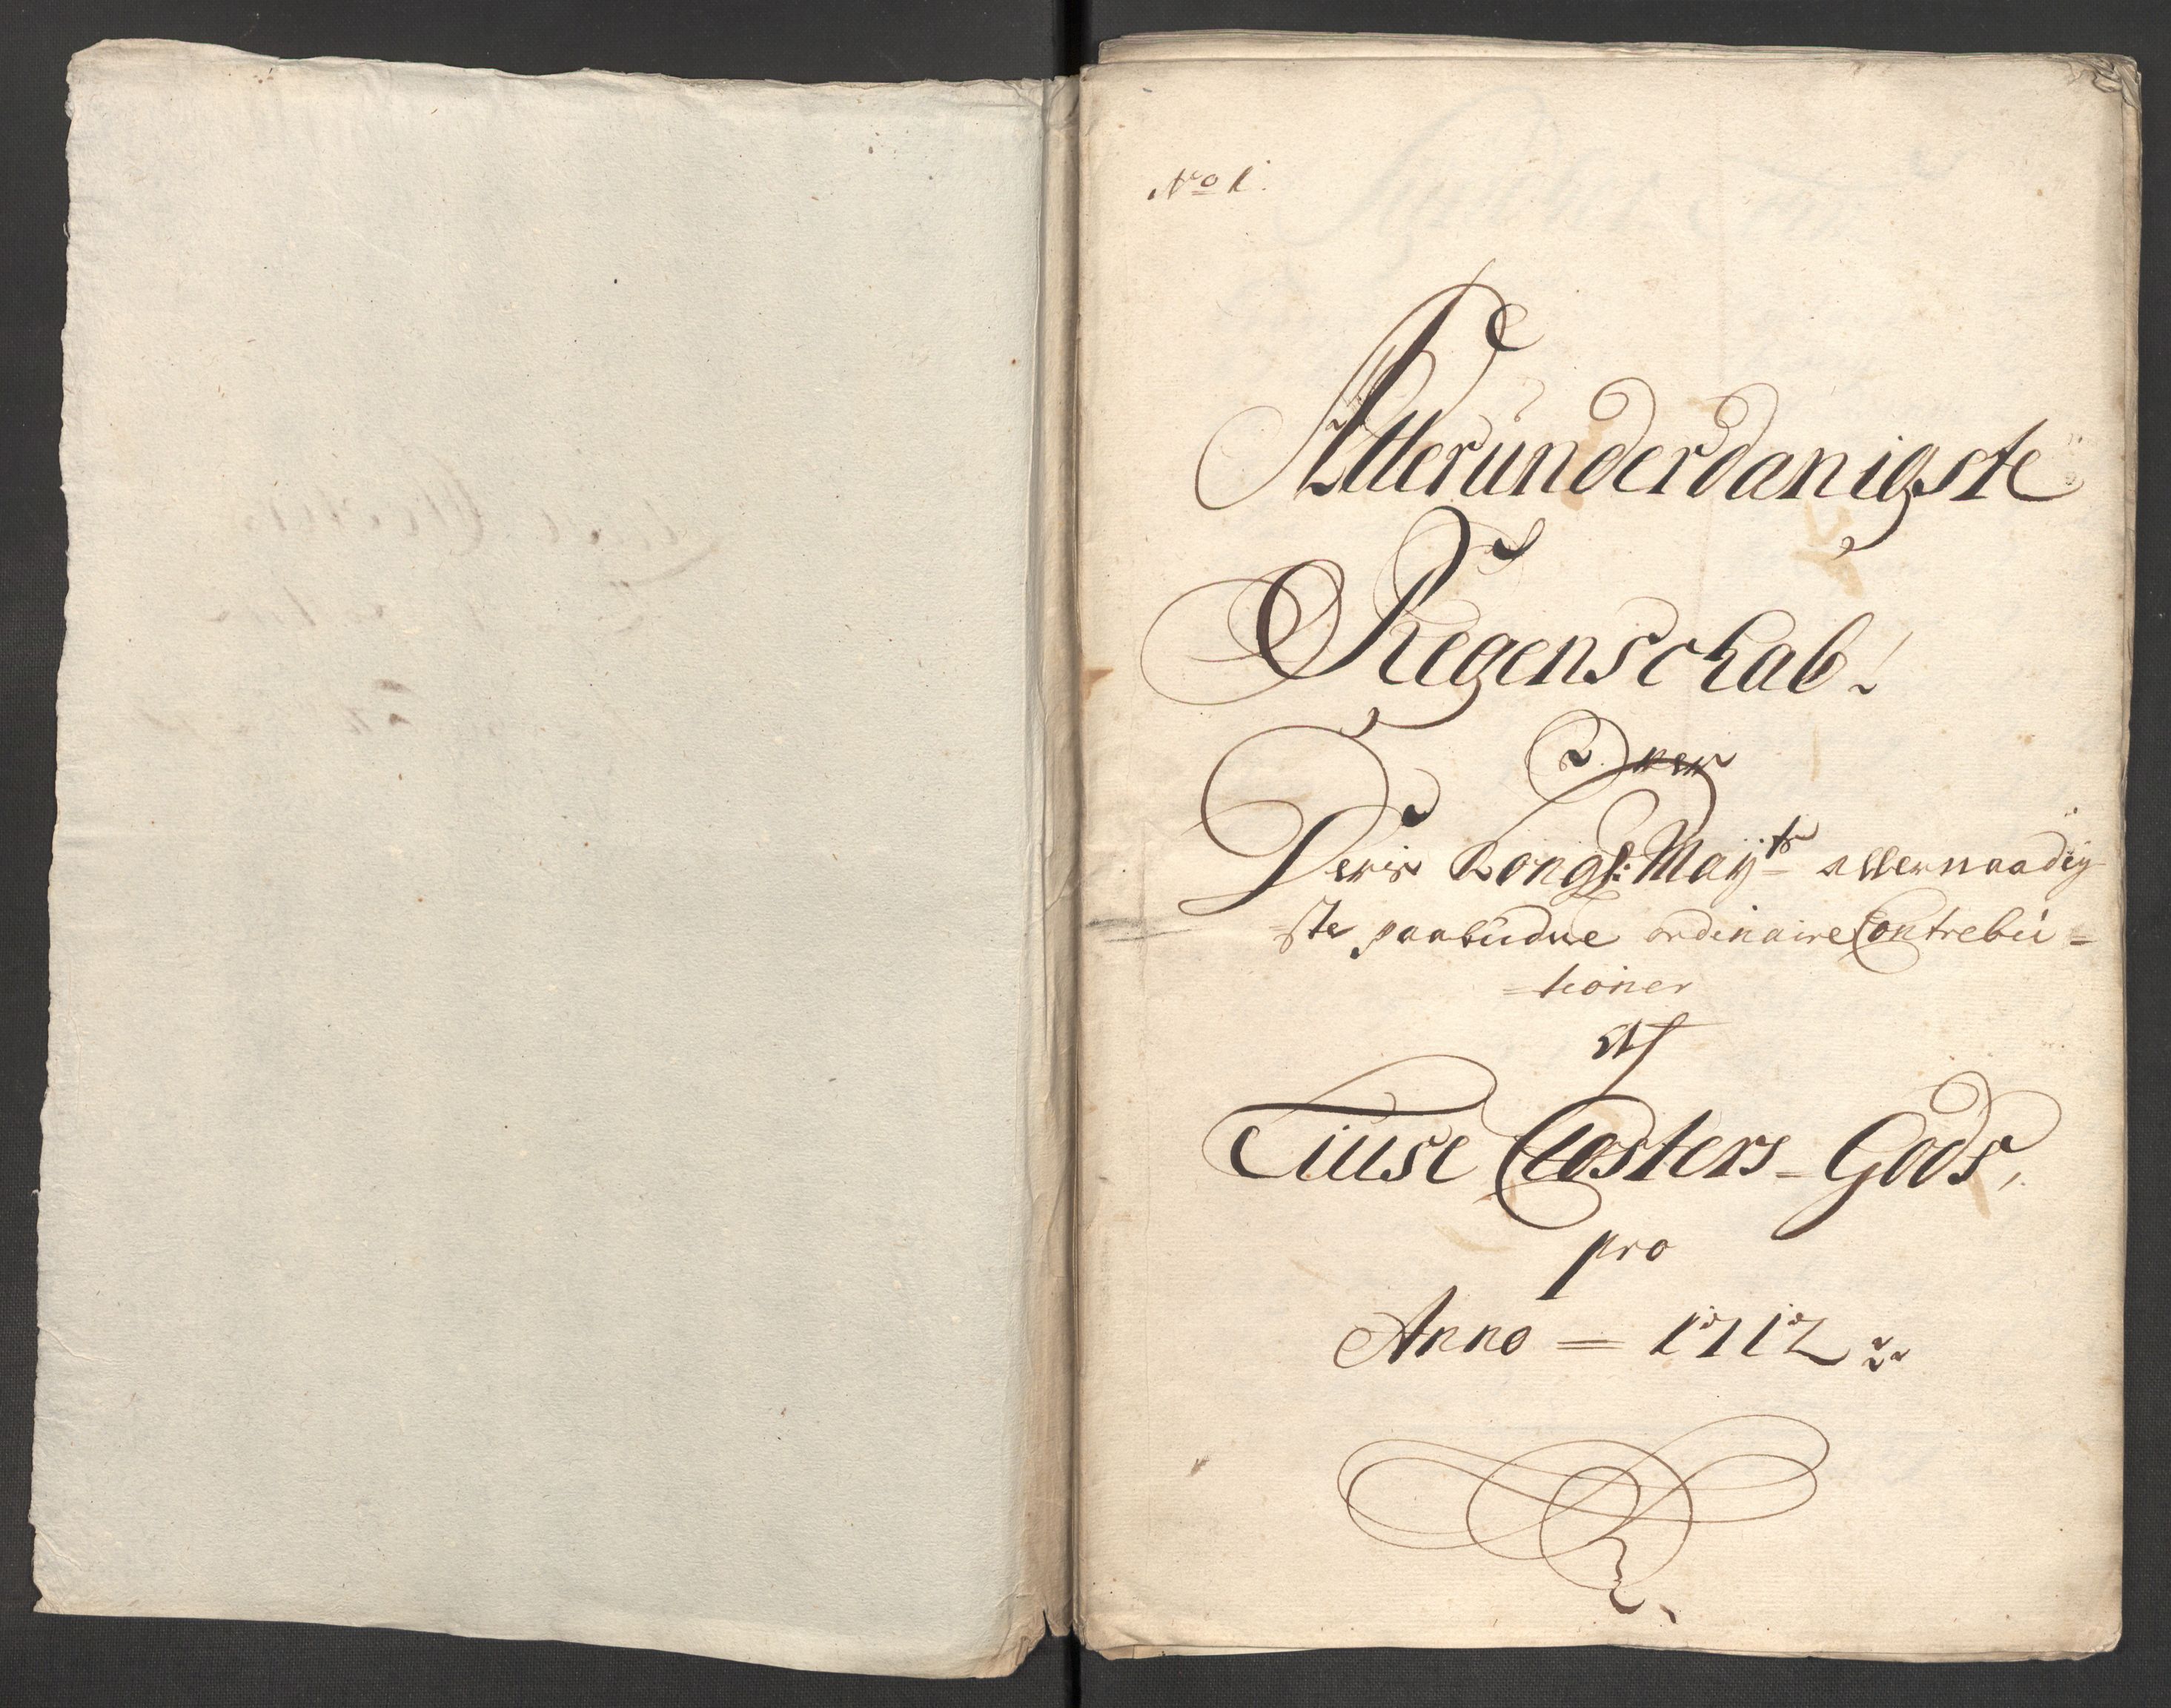 No 1.
Allerunderdanigste
Regenschab!
Over
Deris Kongl: Mayts allernaadig-
ste paabudne ordinaire Contrebu=
=tioner
Af
Tuise Closters-Gods,
pro
Anno = 1712